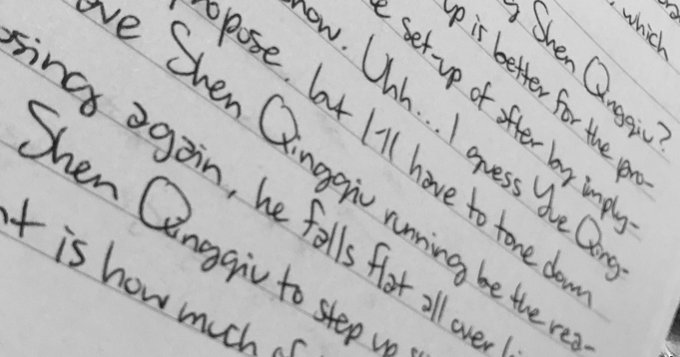 , which
Shen Qingqiu?
up is better for the pro-
set-up of after by imply-
now. Uhh... I guess Yue Qing-
ropose, but I'll have to tone down
ove Shen Qingqiu running be the rea-
ssing again, he falls flat all over
Shen Qingqiu to step up
is how much of